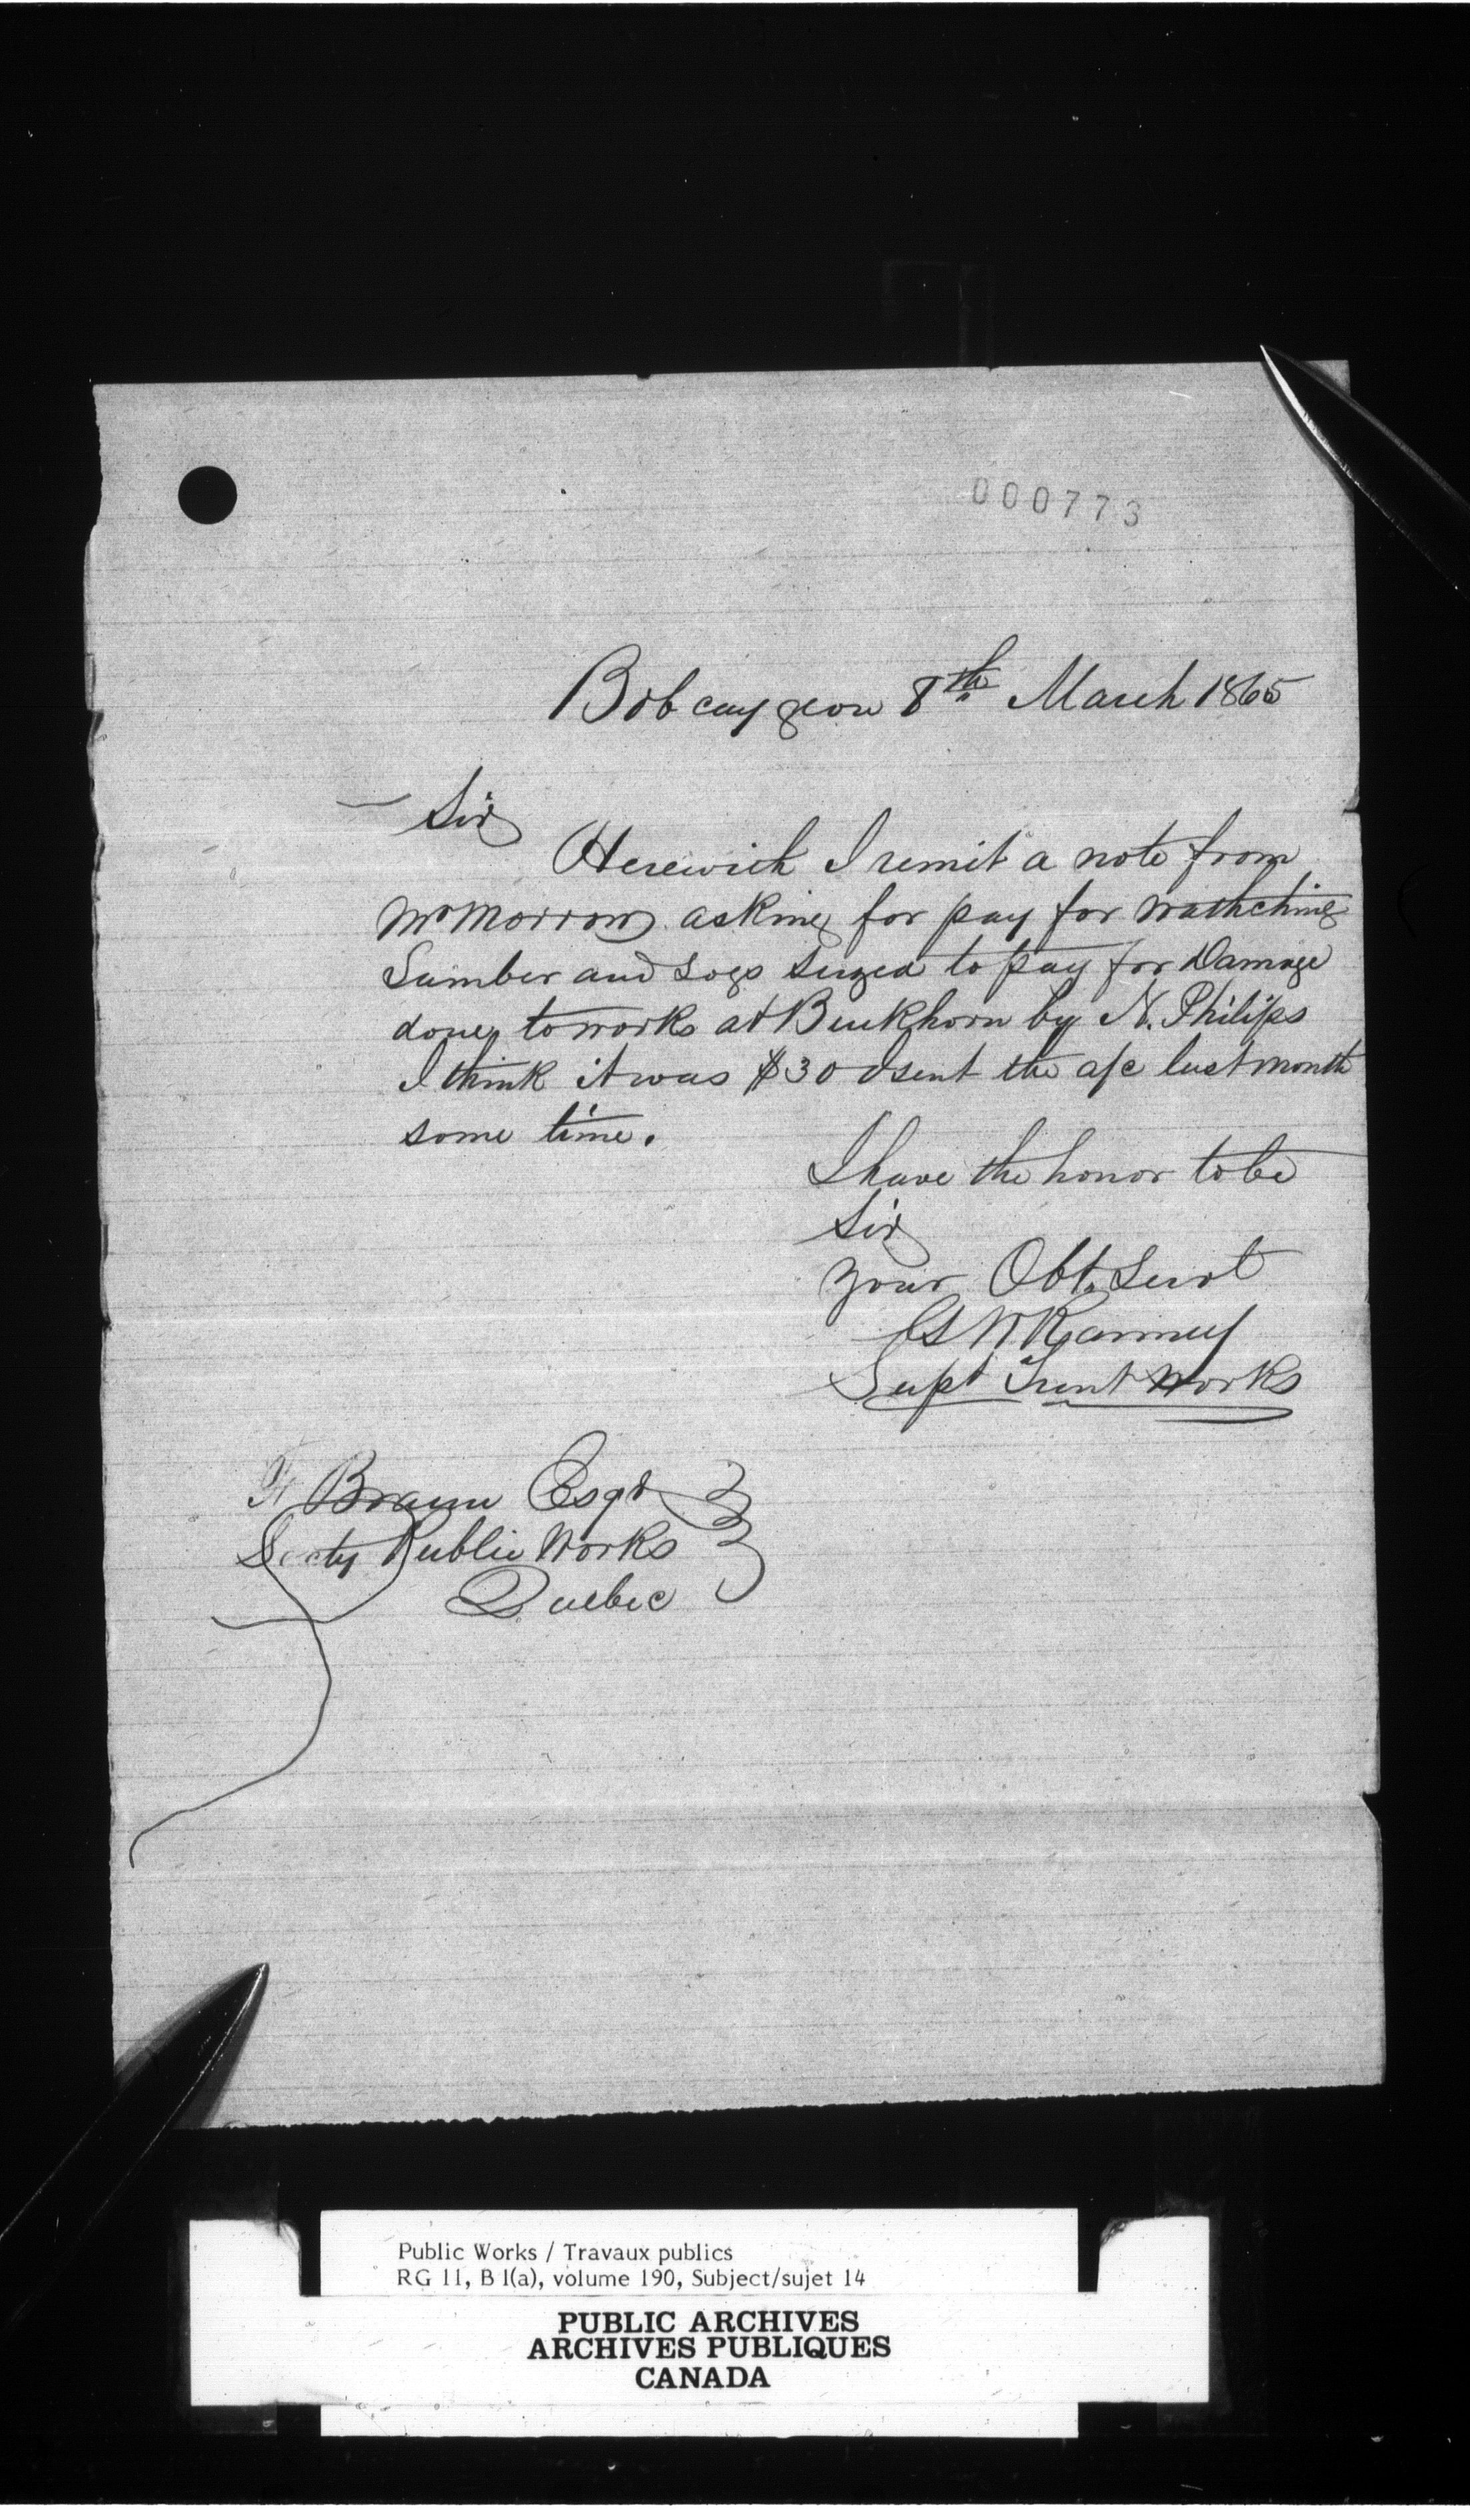 000773
Bobcaygeon 8th March 1865
Sir
Herewith I remit a note from
Mr Morrow asking for pay for wathching
Lumber and Logs seized to pay for Damage
done to works at Buckhorn by N. Philips
I think it was $30 I sent the a/c last month
some time.
I have the honor to be
Sir
your Obt. Servt
G W Ranney
Supt Trent Works
F Braun Esqr
Secty Public Works
Quebec
Public Works / Travaux publics
RG 11, B 1(a), volume 190, Subject/sujet 14
PUBLIC ARCHIVES
ARCHIVES PUBLIQUES
CANADA